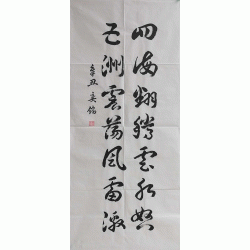 四海翻腾雲水怒
五洲震荡風雷激
辛丑